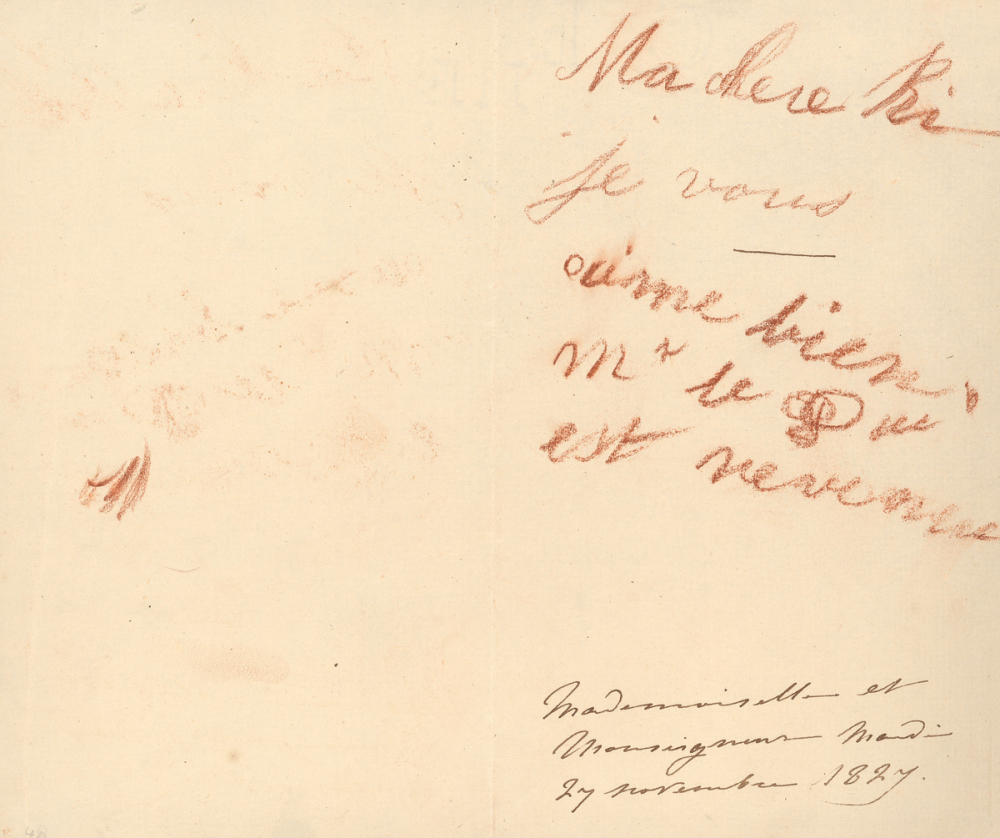 Ma chere Ki
je vous
aime bien
Mr le Du
est revenu
Mademoiselle et
Monseigneur Mardi
27 novembre 1827.